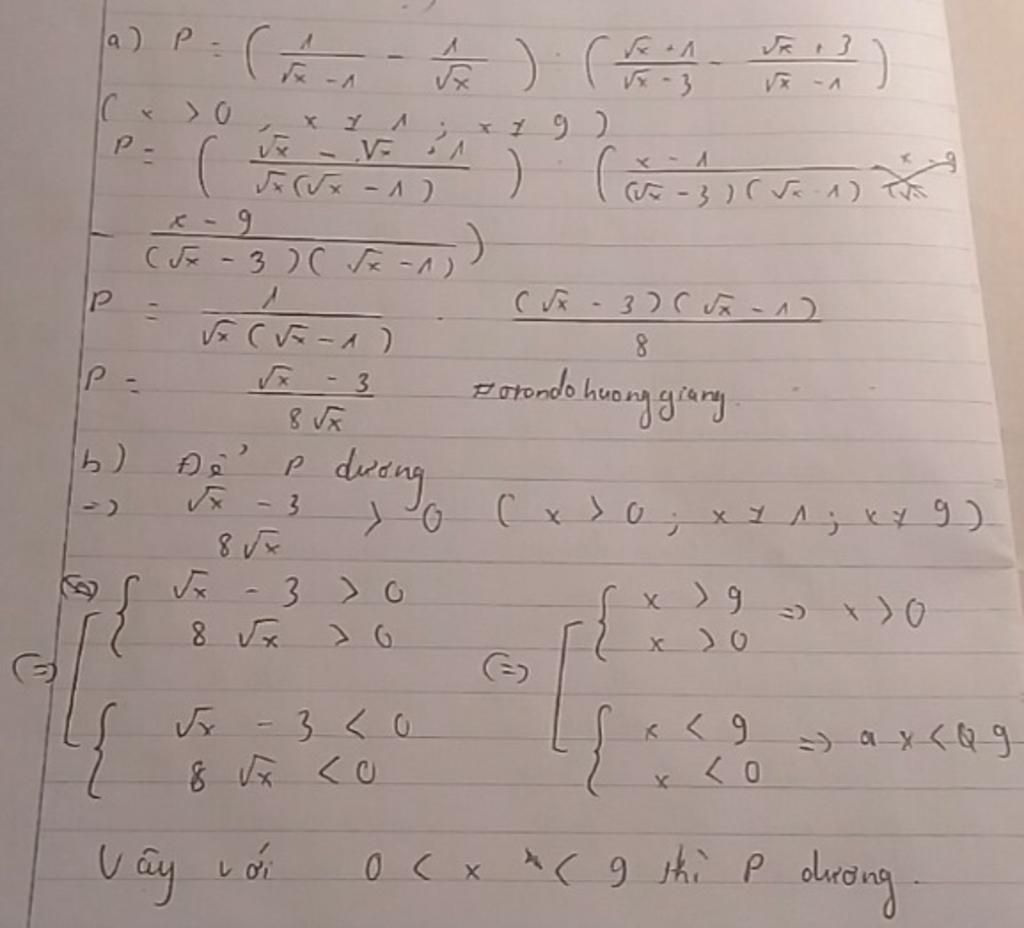 a) P = (1/(√x - 1) - 1/√x) : ((√x + 1)/(√x - 3) - (√x + 3)/(√x - 1))
(x > 0, x ≠ 1; x ≠ 9)
P = ((√x - √x + 1)/(√x(√x - 1))) : ((x - 1)/((√x - 3)(√x - 1))
- (x - 9)/((√x - 3)(√x - 1)))
P = 1/(√x(√x - 1)) . ((√x - 3)(√x - 1))/8
P = (√x - 3)/(8√x) #orondohuonggiang.
b) Để P dương
=> (√x - 3)/(8√x) > 0 (x > 0; x ≠ 1; x ≠ 9)
(=) [ { √x - 3 > 0 (=) [ { x > 9 => x > 0
8√x > 0 x > 0
{ √x - 3 < 0 { x < 9 => x < 9
8√x < 0 x < 0
Vậy với 0 < x < 9 thì P dương.